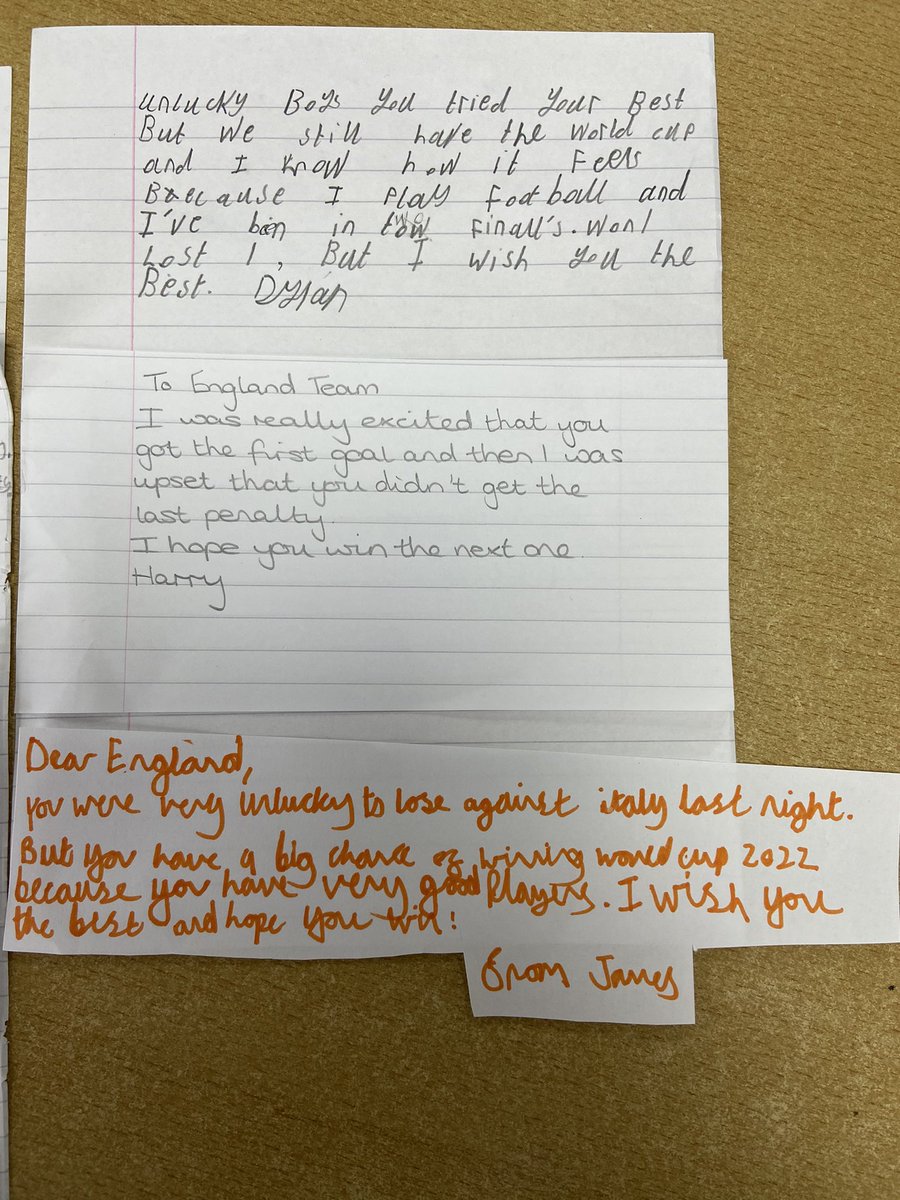 unlucky Boys you tried your Best
But we still have the world cup
and I know how it Feels
Because I Play Football and
I've been in two Finall's. Won 1
Lost 1, But I wish you the
Best. Dylan
To England Team
I was really excited that you
got the first goal and then I was
upset that you didn't get the
last penalty.
I hope you win the next one.
Harry
Dear England,
you were very unlucky to lose against italy last night.
But you have a big chance of winning world cup 2022
because you have very good Players. I wish you
the best and hope you win!
From James